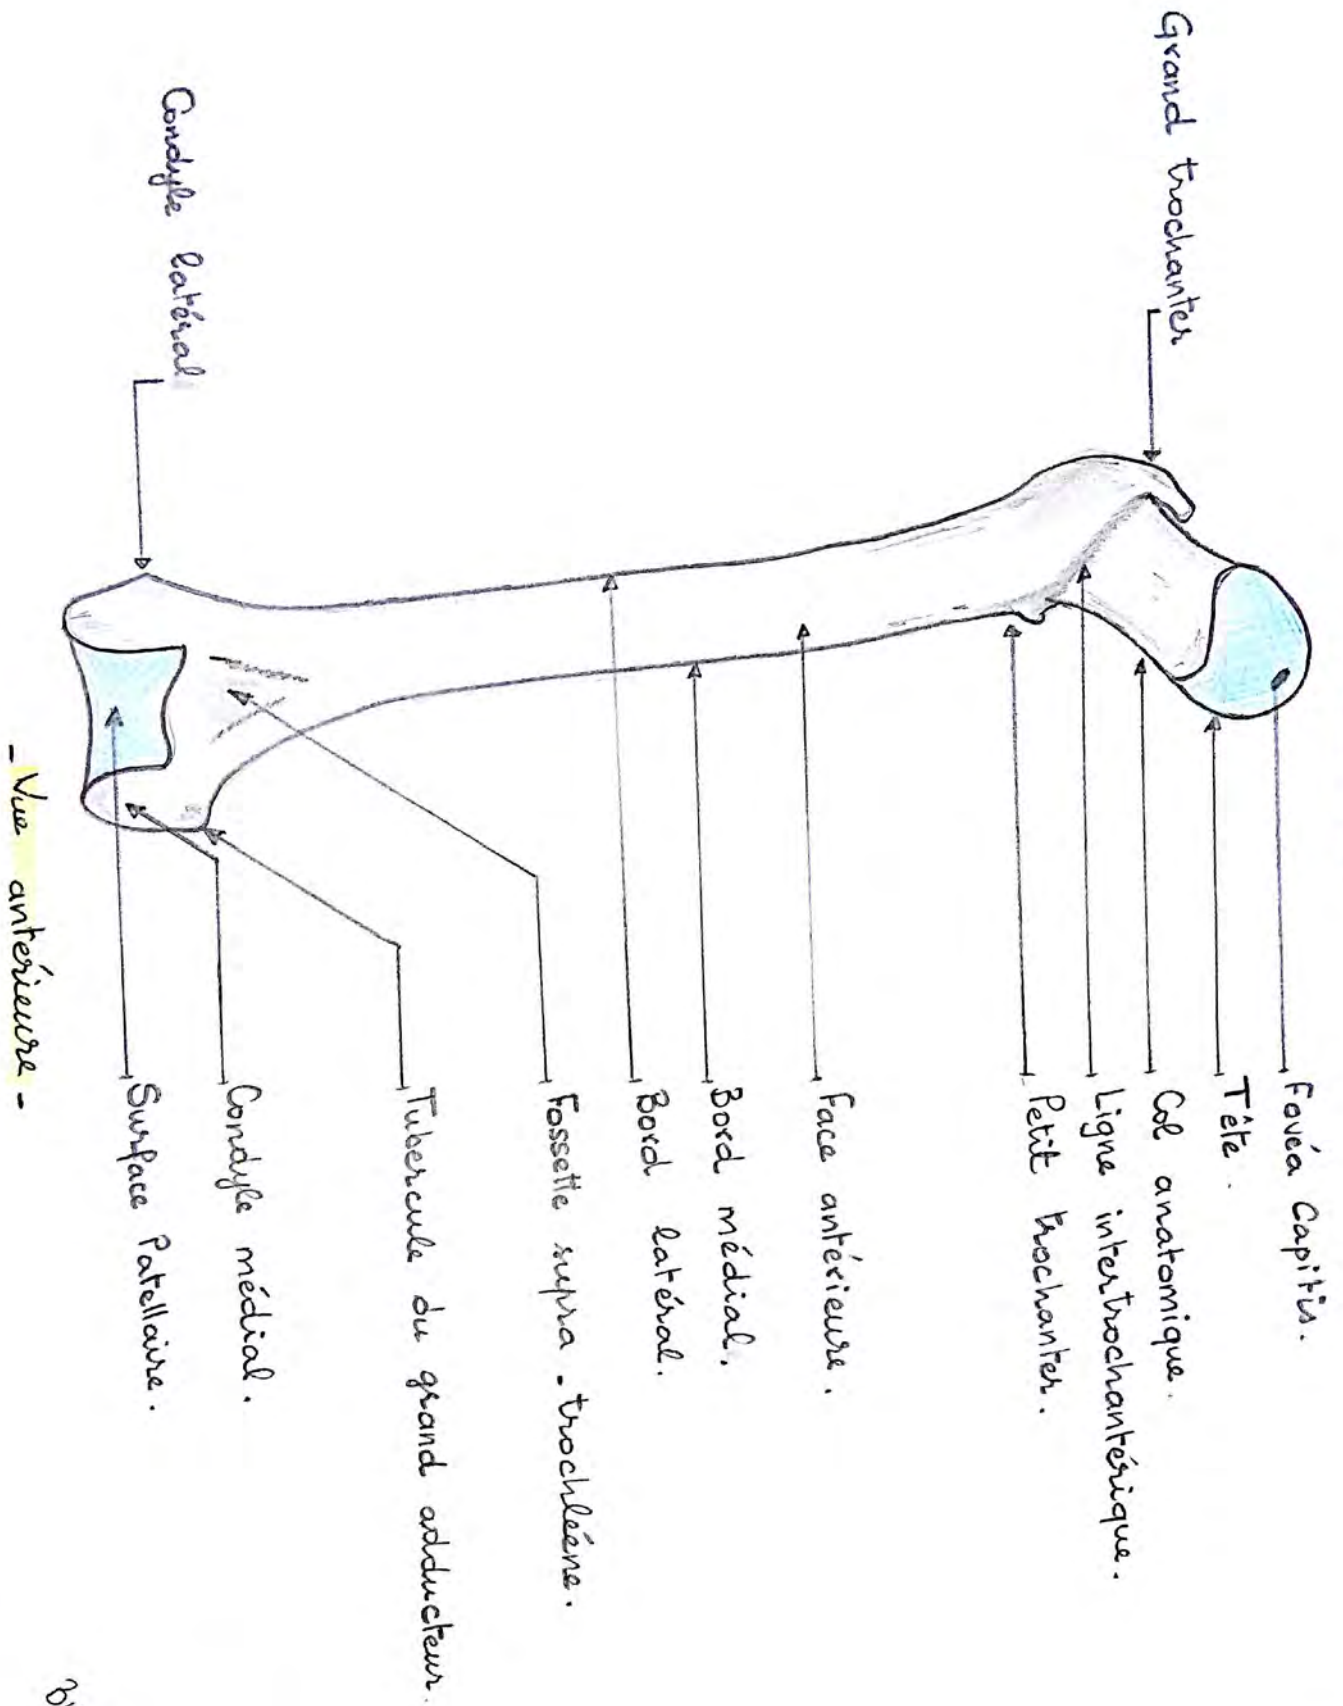 Grand trochanter
Condyle latéral
Fovéa Capitis.
Tête.
Col anatomique.
Ligne intertrochantérique.
Petit trochanter.
Face antérieure.
Bord médial.
Bord latéral.
Fossette supra-trochléène.
Tubercule du grand adducteur.
Condyle médial.
Surface Patellaire.
- Vue antérieure -